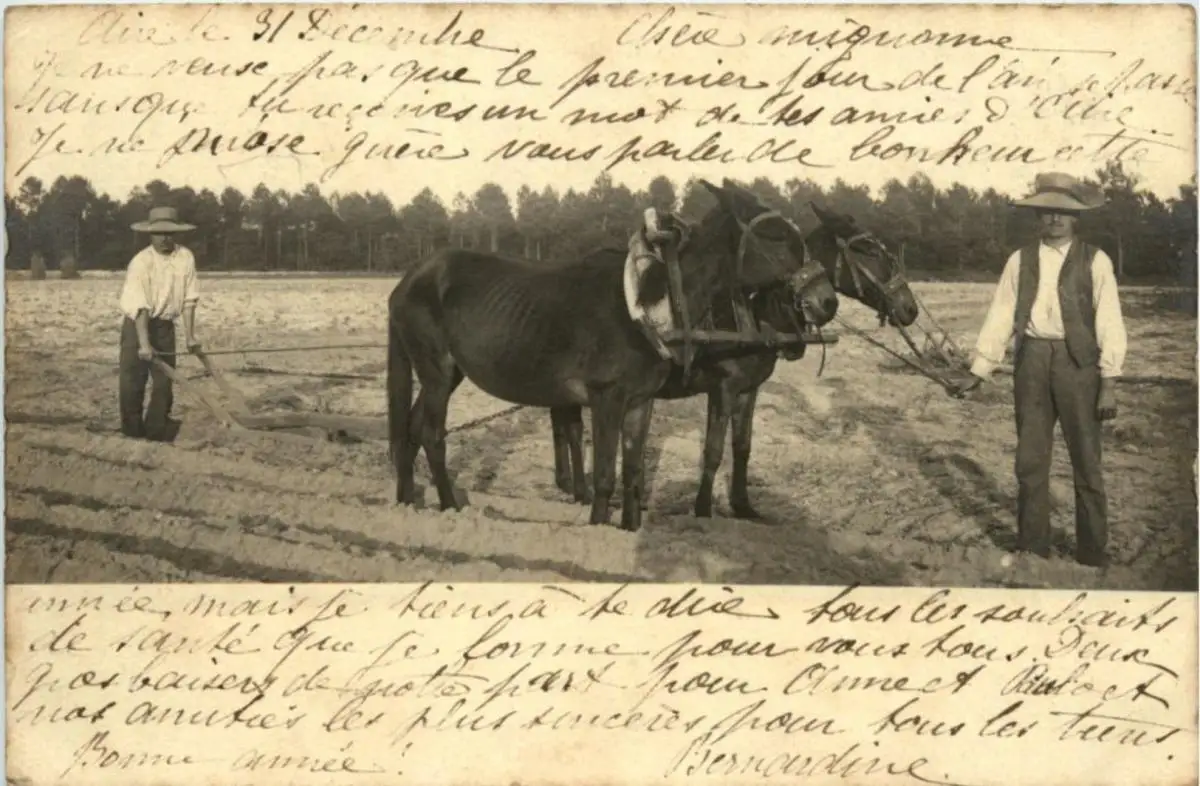 Aire le 31 Décembre Chère mignonne
Je ne veux pas que le premier jour de l'an se passe
sans que tu reçoives un mot de tes amies d'Aire.
Je ne puose guère vous parler de bonheur cette
année, mais je tiens à te dire tous les souhaits
de santé que je forme pour vous tous. Deux
gros baisers de notre part pour Anne et et
nos amitiés les plus sincères pour tous les tiens.
Bonne année! Bernardine.